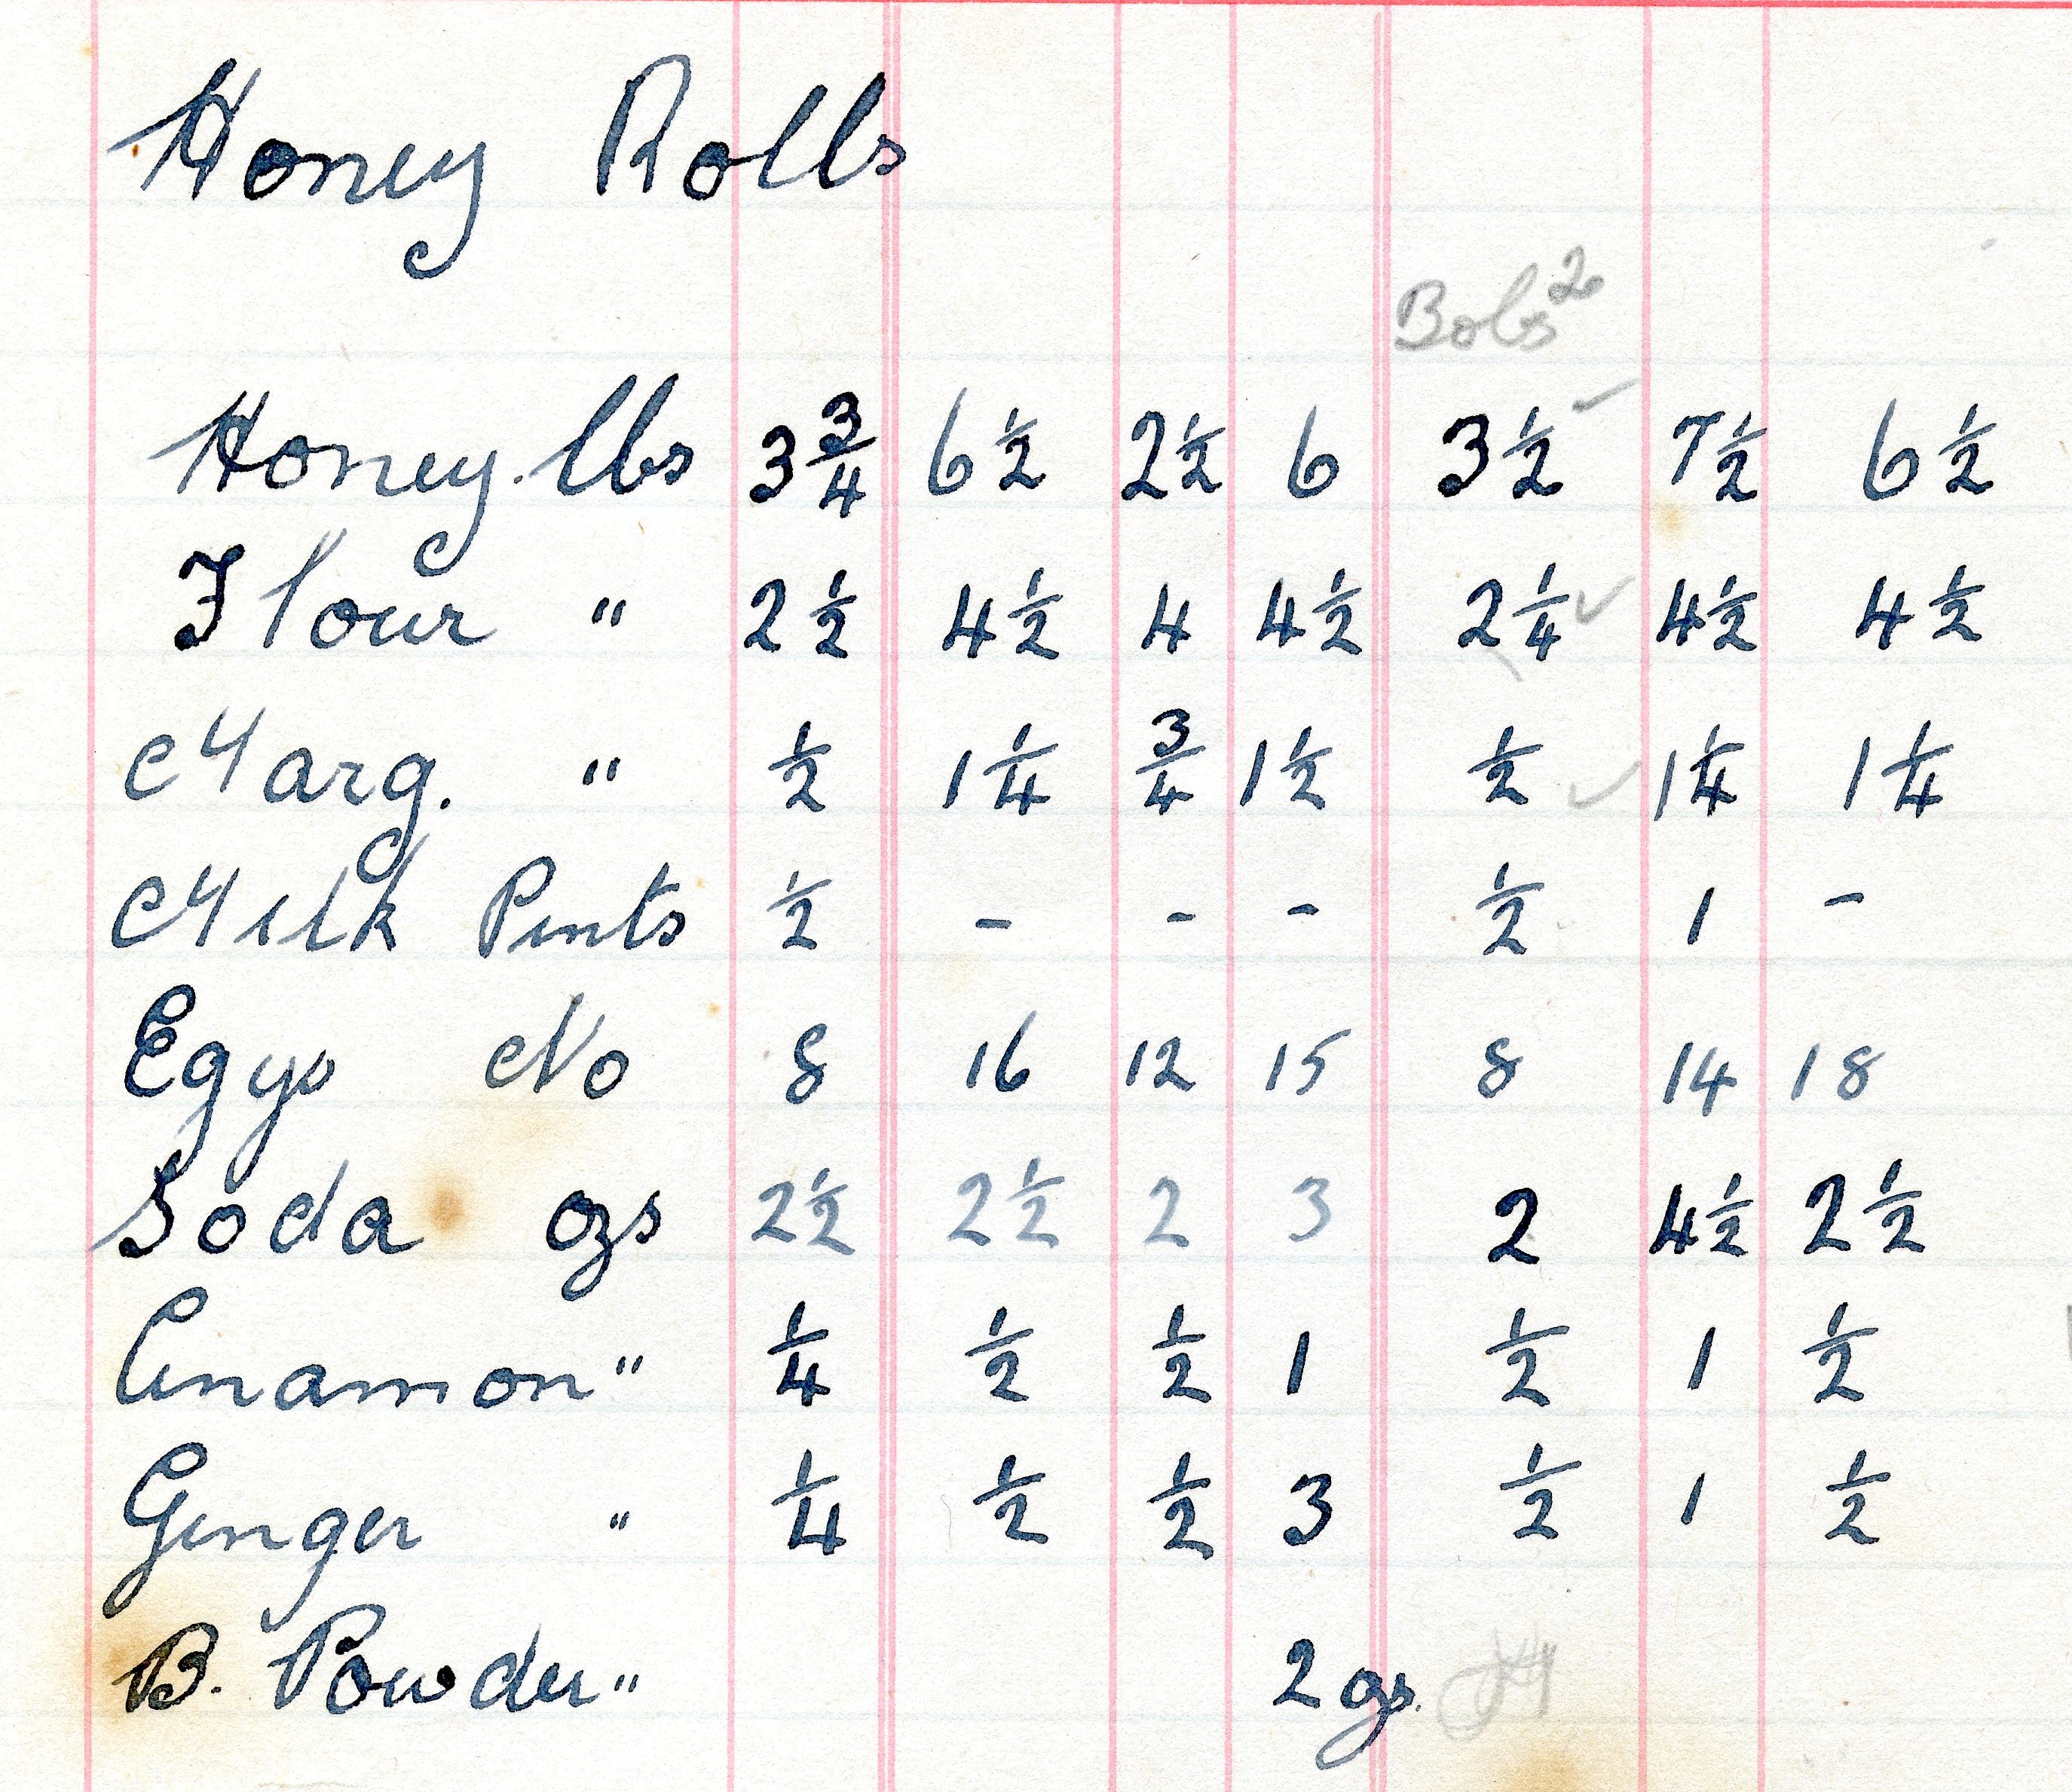 Honey Rolls
Bobs
Honey. lbs 3 3/4 6 1/2 2 1/2 6 3 1/2 ✓ 7 1/2 6 1/2
Flour " 2 1/2 4 1/2 4 4 1/2 2 1/4 ✓ 4 1/2 4 1/2
Marg. " 1/2 1 1/4 3/4 1 1/2 1/2 ✓ 1 1/4 1 1/4
Milk Pints 1/2 - - - 1/2 1 -
Eggs No 8 16 12 15 8 14 18
Soda ozs 2 1/2 2 1/2 2 3 2 4 1/2 2 1/2
Cinamon " 1/4 1/2 1/2 1 1/2 1 1/2
Ginger " 1/4 1/2 1/2 3 1/2 1 1/2
B. Powder " 2 ozs.